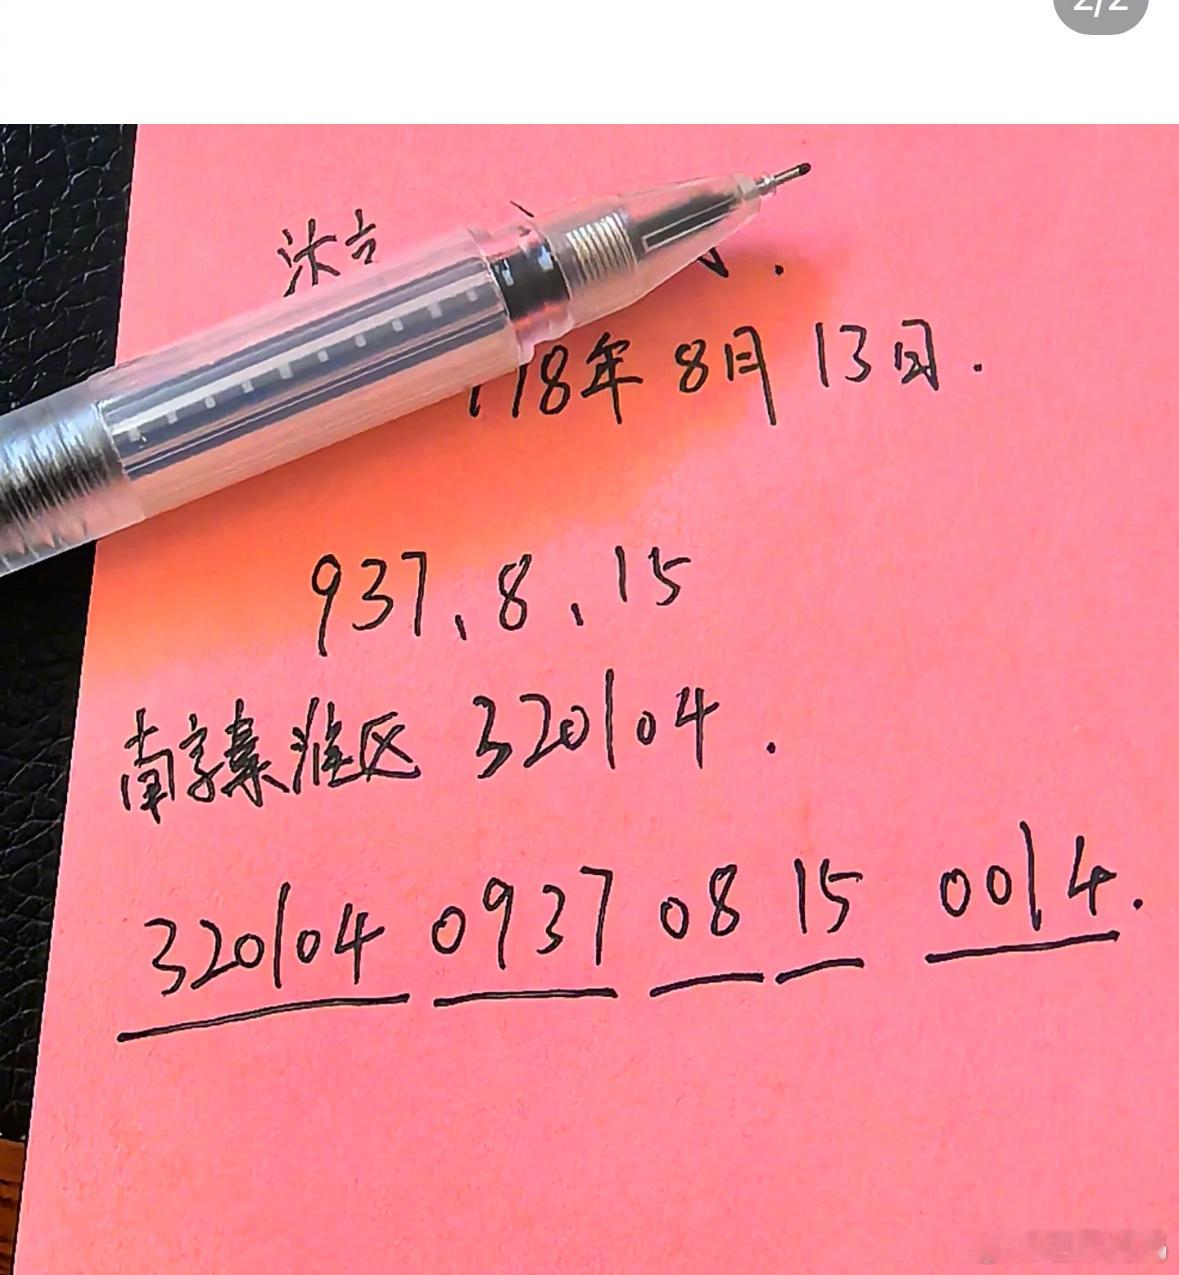 2/2
118年8月13日.
937、8、15
南京秦淮区 320104.
320104 0937 08 15 0014.